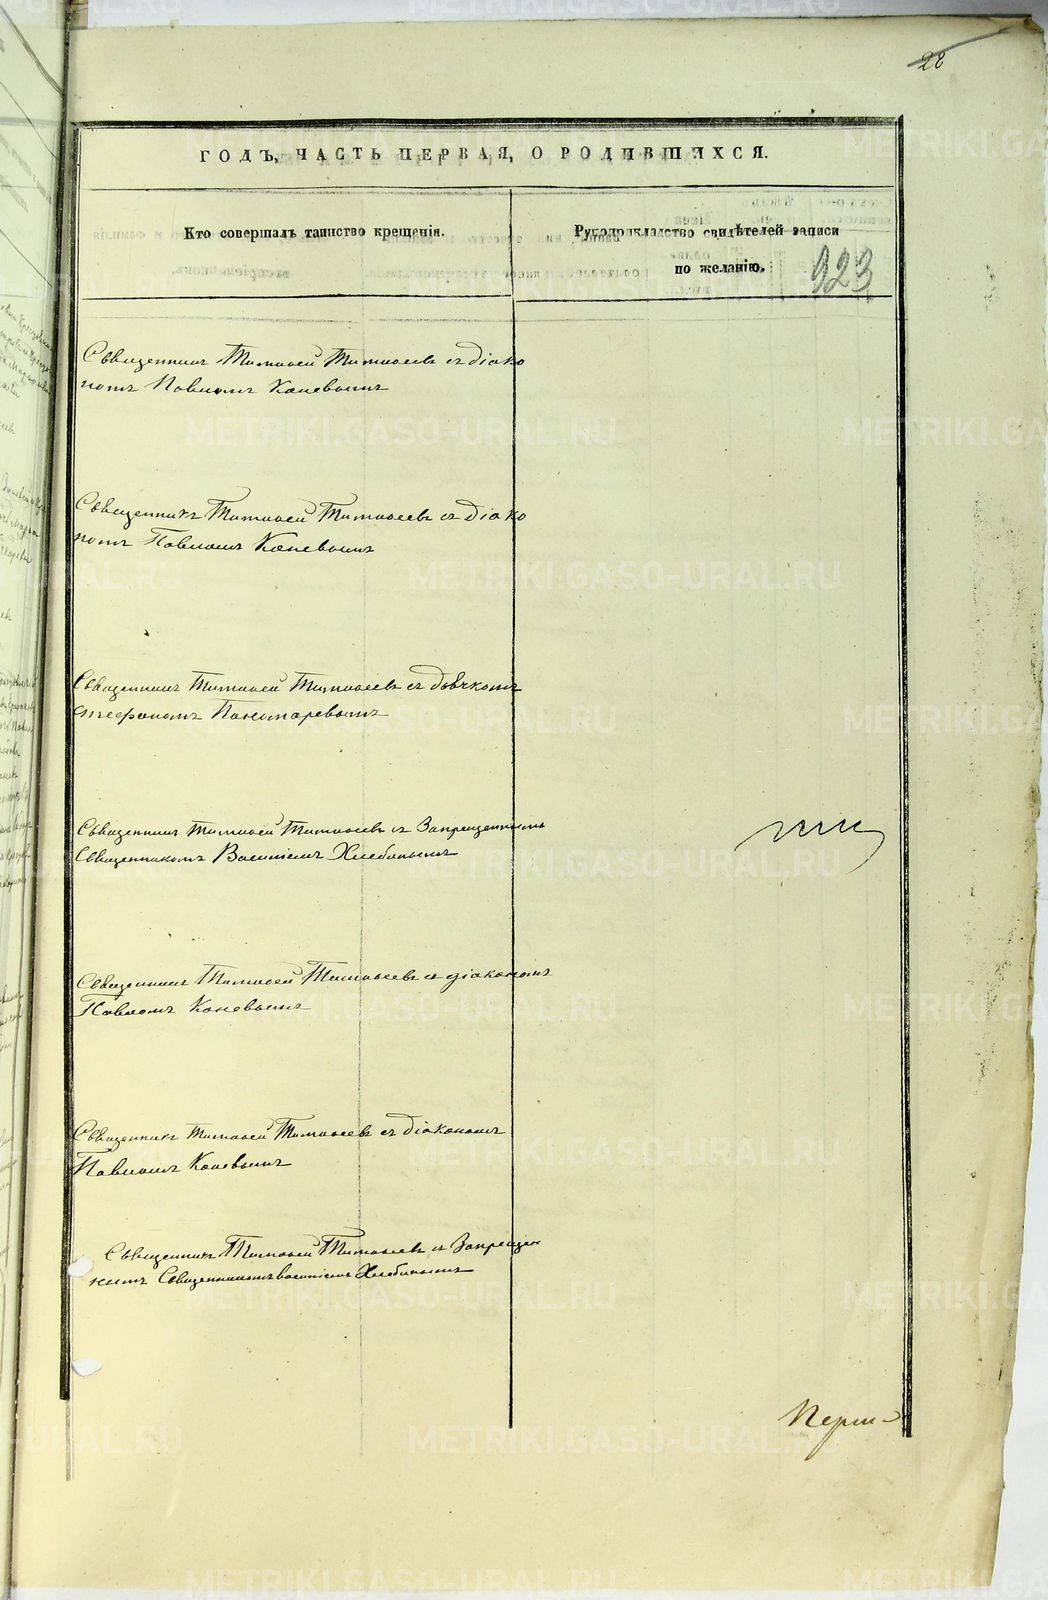 28
ГОДЪ, ЧАСТЬ ПЕРВАЯ, О РОДИВШИХСЯ.
Кто совершалъ таинство крещенія.
Рукоприкладство свидѣтелей записи
по желанію.
923
Священникъ Тимоѳей Тимоѳеевъ съ діако
номъ Павломъ Каневымъ
Священникъ Тимоѳей Тимоѳеевъ съ діако
номъ Павломъ Каневымъ
Священникъ Тимоѳей Тимоѳеевъ съ дьячкомъ
Стефаномъ Пономаревымъ
Священникъ Тимоѳей Тимоѳеевъ съ Запрещеннымъ
Священникомъ Василіемъ Хлебинымъ
Священникъ Тимоѳей Тимоѳеевъ съ діакономъ
Павломъ Каневымъ
Священникъ Тимоѳей Тимоѳеевъ съ діакономъ
Павломъ Каневымъ
Священникъ Тимоѳей Тимоѳеевъ съ Запрещен
нымъ Священникомъ Василіемъ Хлебинымъ
METRIKI.GASO-URAL.RU